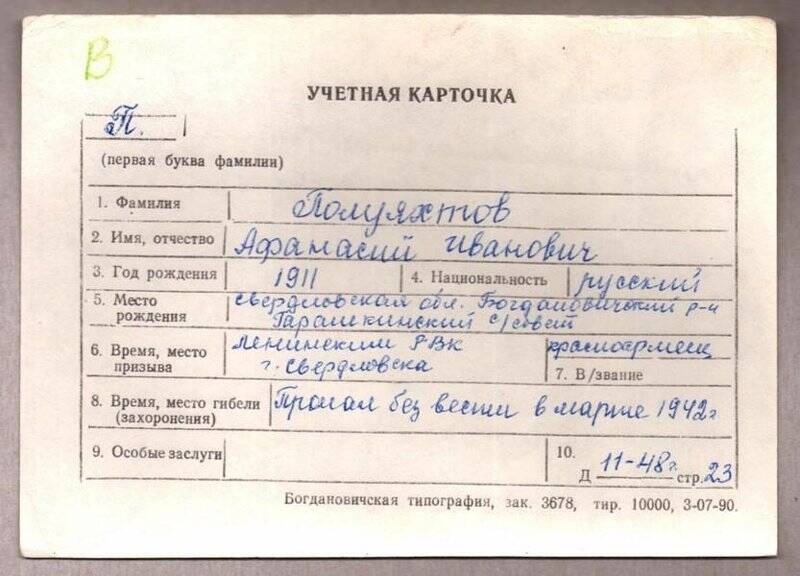 В
УЧЕТНАЯ КАРТОЧКА
П.
(первая буква фамилии)
1. Фамилия Полуяхтов
2. Имя, отчество Афанасий Иванович
3. Год рождения 1911 4. Национальность русский
5. Место рождения Свердловская обл. Богдановичский р-н
Гарашкинский с/совет
6. Время, место призыва Ленинским РВК
г. Свердловска
красноармеец
7. В/звание
8. Время, место гибели (захоронения) Пропал без вести в марте 1942г
9. Особые заслуги
10.
Д 11-48г. стр. 23
Богдановичская типография, зак. 3678, тир. 10000, 3-07-90.